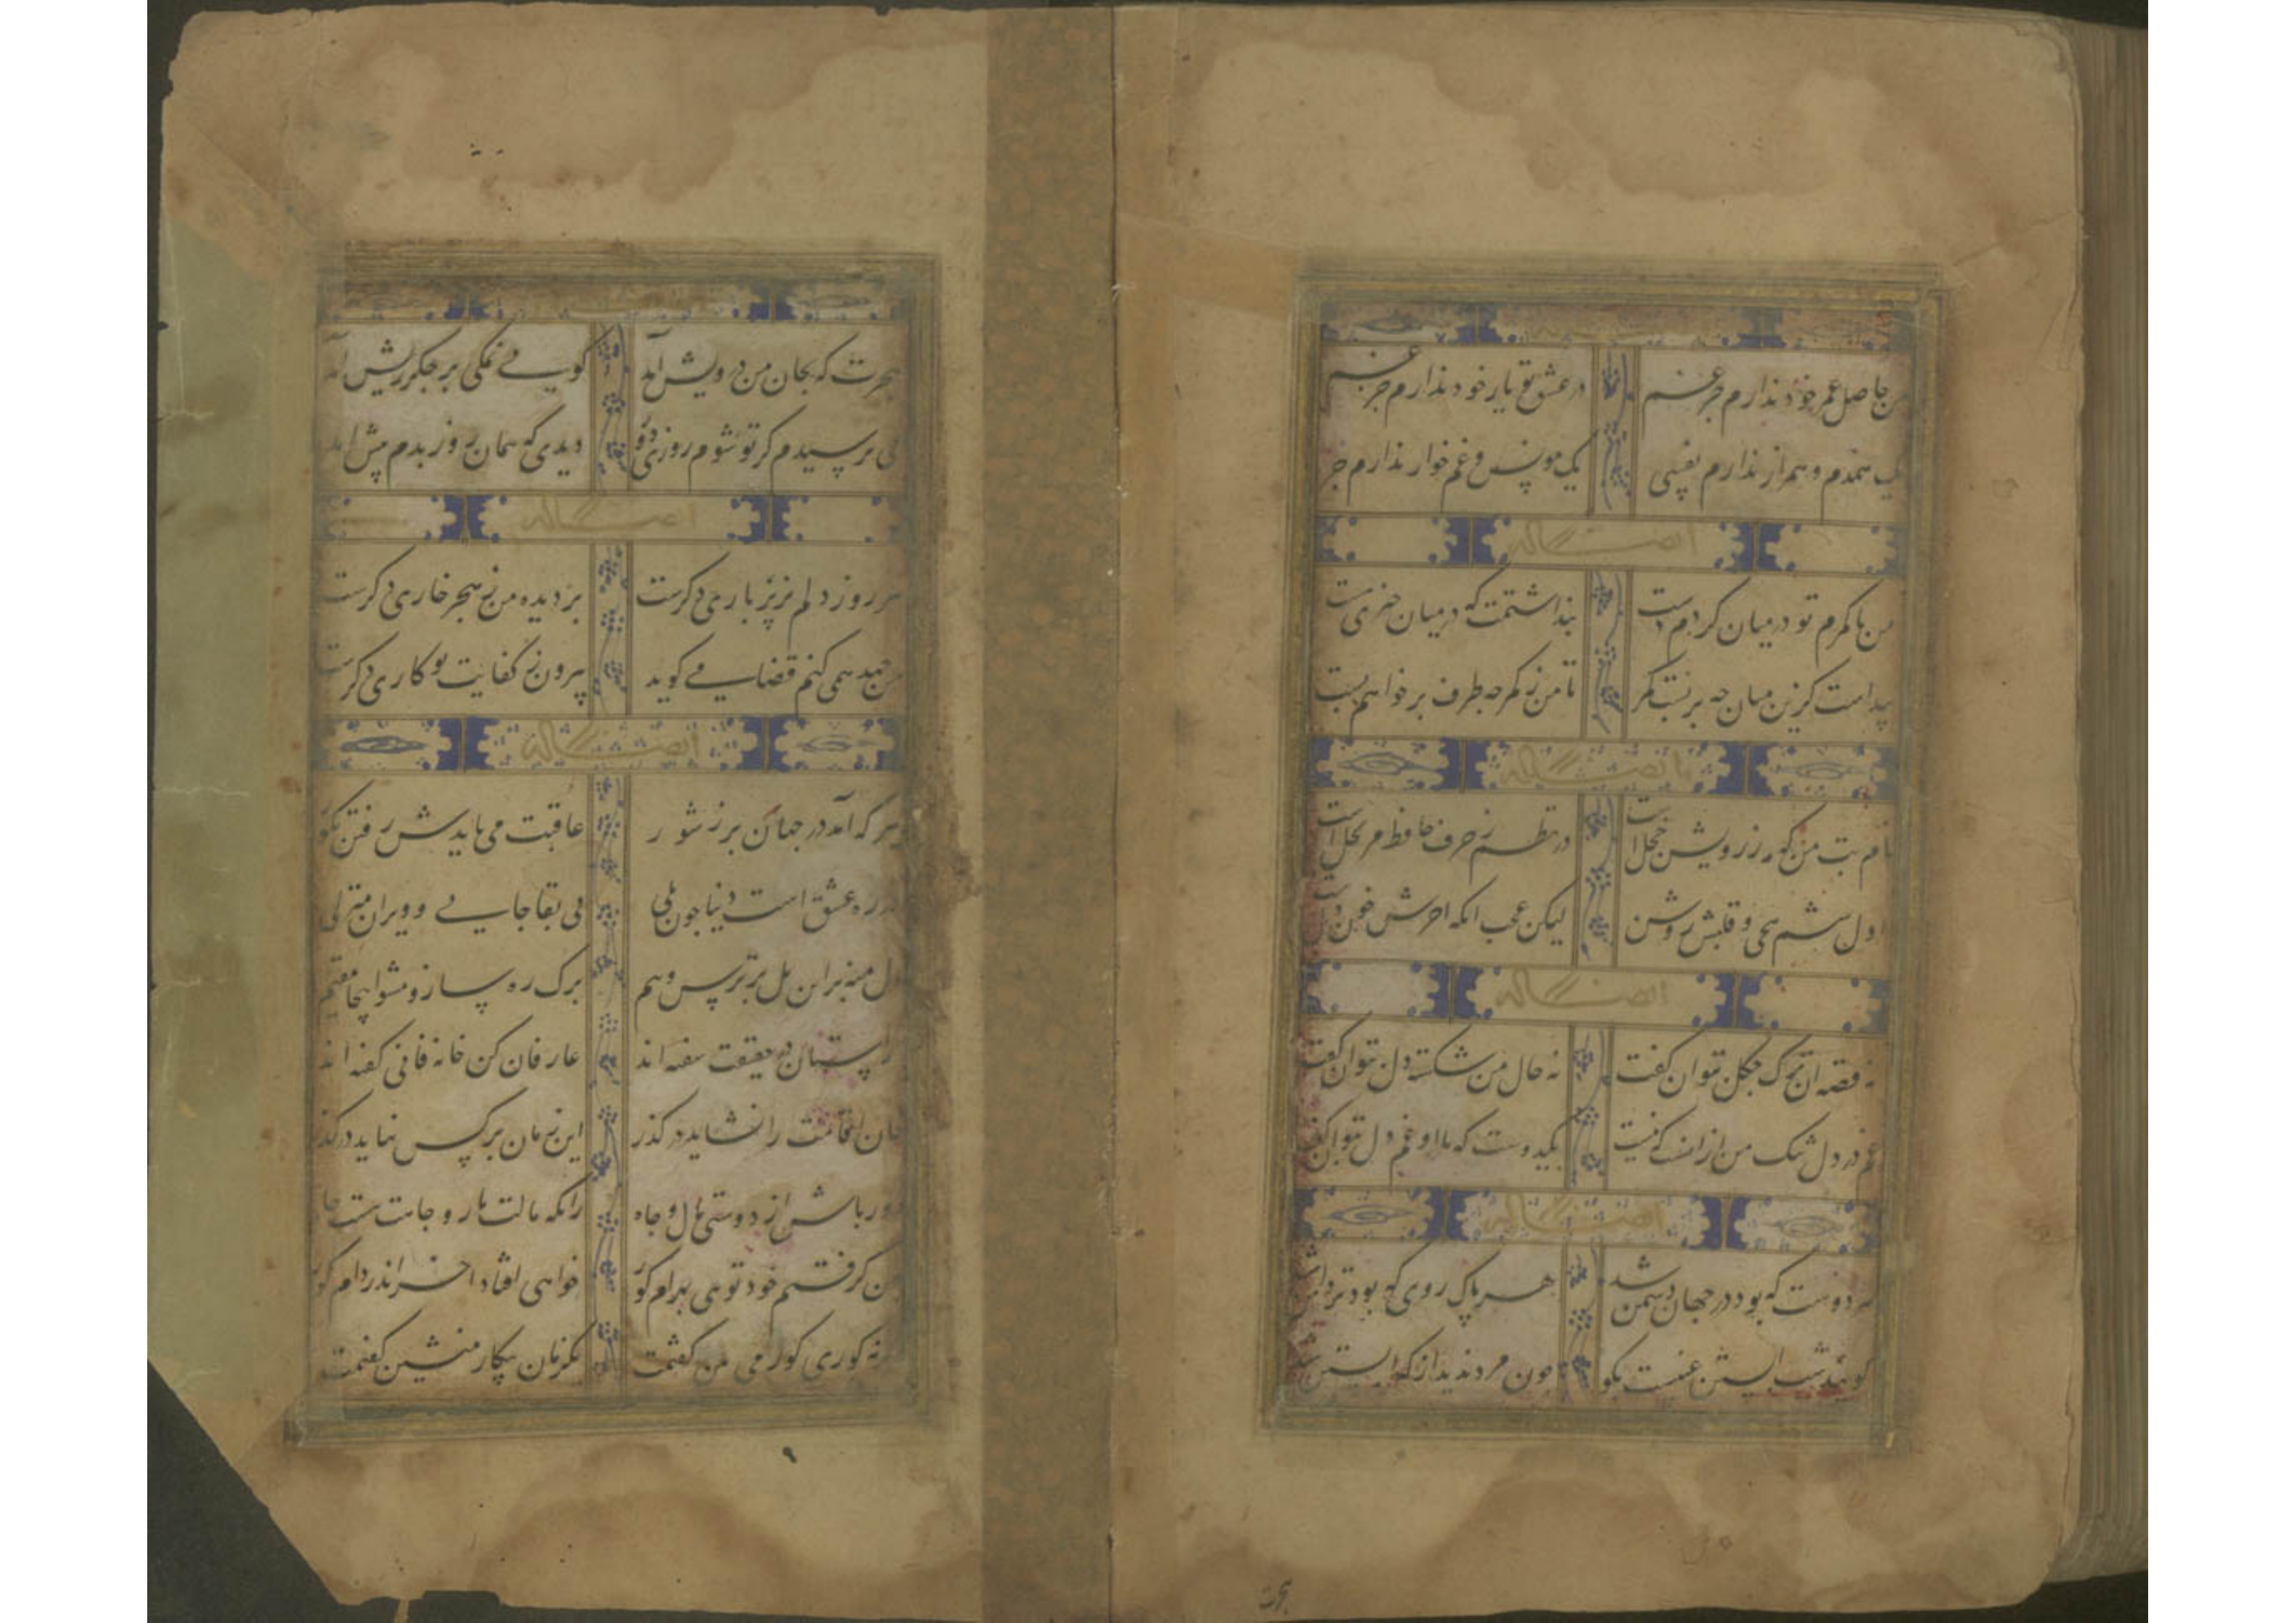 من حاصل عمر خود ندارم جز غم در عشق تو یار خود ندارم جز غم
یک همدم و همراز ندارم نفسی یک مونس و غم خوار ندارم جز
ایضاً له
من با کمرم تو در میان کردم دست پنداشتمت که در میان چیزی هست
پیداست کزین میان چه بربست کمر تا من ز کمر چه طرف برخواهم بست
ایضاً له
نام بت من که مه ز رویش خجل است در نظم ز حرف حافظ مرتحل است
اول ششم همی و قلبش روشن لیکن عجب آنکه آخرش خون
ایضاً له
نه قصه آن ترک چگل بتوان گفت نه حال من شکسته دل بتوان گفت
غم در دل تنگ من از آنست که نیست یکدوست که با او غم دل بتوان گفت
ایضاً له
هر دوست که بود در جهان دشمن شد هر پاک روی که بود تردامن شد
گویند شب آبستن غیبست بگو چون مرد ندید از که آبستن شد
هجرت
هجرت که بجان من درویش آمد گویی نمکی بر جگر ریش آمد
می ترسیدم کز تو شوم روزی دور دیدی که همان روز بدم پیش آمد
ایضاً له
هر روز دلم بزیر باری دگرست بر دیده من ز هجر خاری دگرست
من جهد همی کنم قضا می گوید بیرون ز کفایت تو کاری دگرست
ایضاً له
هر که آمد در جهان پر ز شور عاقبت می بایدش رفتن بگور
در ره عشق است دنیا چون پلی بی بقا جایی و ویران منزلی
دل منه بر این پل پر ترس و بیم برگ ره ساز و مشو اینجا مقیم
راستبان در حقیقت سفته اند عارفان کین خانه فانی گفته اند
خان اقامت را نشاید در گذر این زمان بر کس نیاید در گذر
دور باش از دوستی مال و جاه زانکه مالت مار و جاهت هست چاه
من گرفتم خود تویی بهرام گور خواهی افتاد آخر اندر دام گور
گرنه کوری گور می بین گفتمت یکزمان بیکار منشین گفتمت
۹